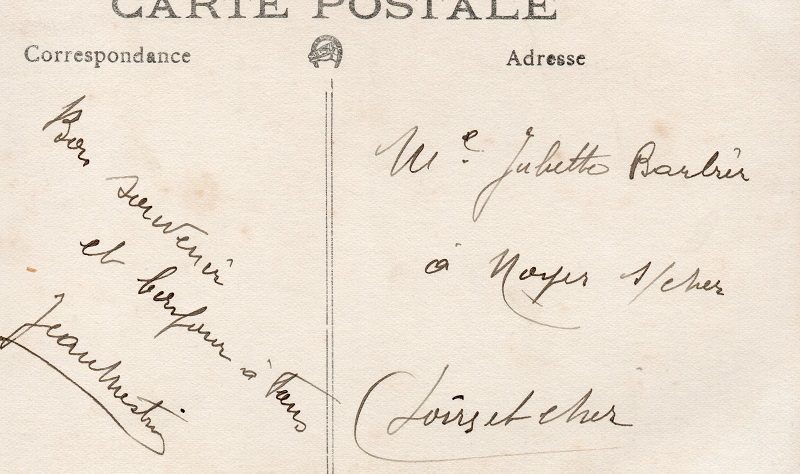 CARTE POSTALE
Correspondance
Adresse
Bon
souvenir
et bonjour à tous
Mle Juliette Barbier
à Noyer s/cher
Loir et cher